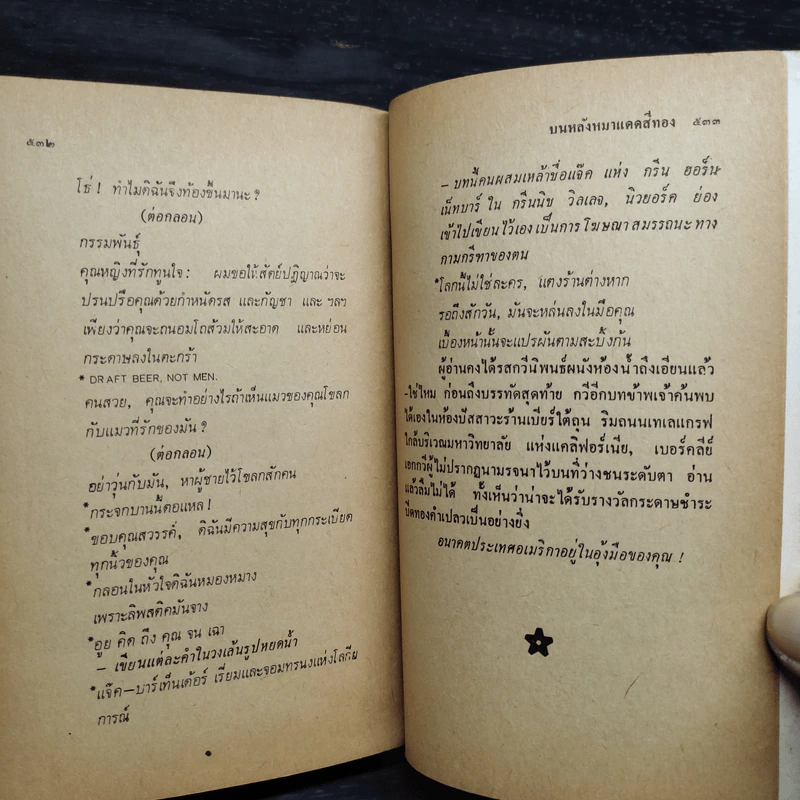 ๕๓๒
โธ่ ! ทำไมดิฉันจึงท้องขึ้นมานะ ?
(ต่อกลอน)
กรรมพันธุ์
คุณหญิงที่รักทูนใจ : ผมขอให้สัตย์ปฏิญาณว่าจะ
ปรนปรือคุณด้วยกำหนัดรส และกัญชา และ ฯลฯ
เพียงว่าคุณจะถนอมโถส้วมให้สะอาด และหย่อน
กระดาษลงในตะกร้า
* DRAFT BEER, NOT MEN.
คนสวย, คุณจะทำอย่างไรถ้าเห็นแมวของคุณโขลก
กับแมวที่รักของมัน ?
(ต่อกลอน)
อย่าวุ่นกับมัน, หาผู้ชายไว้โขลกสักคน
*กระจกบานนี้ตอแหล !
*ขอบคุณสวรรค์, ดิฉันมีความสุขกับทุกกระเบียด
ทุกนิ้วของคุณ
*กลอนในหัวใจดิฉันหมองหมาง
เพราะลิพสติคมันจาง
*อูย คิด ถึง คุณ จน เฉา
– เขียนแต่ละคำในวงเล้นรูปหยดน้ำ
*แจ๊ค–บาร์เท็นเด้อร์ เรี่ยมและจอมทรนงแห่งโลกีย
การณ์
บนหลังหมาแดดสีทอง ๕๓๓
– บทนี้คนผสมเหล้าชื่อแจ๊ค แห่ง กรีน ฮอร์น-
เน็ทบาร์ ใน กรีนนิช วิลเลจ, นิวยอร์ค ย่อง
เข้าไปเขียนไว้เอง เป็นการโฆษณา สมรรถนะ ทาง
กามกรีฑาของตน
*โลกนี้ไม่ใช่ละคร, แตงร้านต่างหาก
รอถึงสักวัน, มันจะหล่นลงในมือคุณ
เบื้องหน้านั้นจะแปรผันตามสะบึ้งกัน
ผู้อ่านคงได้รสกวีนิพนธ์ผนังห้องน้ำถึงเอียนแล้ว
-ใช่ไหม ก่อนถึงบรรทัดสุดท้าย กวีอีกบทข้าพเจ้าค้นพบ
ได้เองในห้องปัสสาวะร้านเบียร์ใต้ถุน ริมถนนเทเลแกรฟ
ใกล้บริเวณมหาวิทยาลัย แห่งแคลิฟอร์เนีย, เบอร์คลีย์
เอกกวีผู้ไม่ปรากฏนามรจนาไว้บนที่ว่างชนระดับตา อ่าน
แล้วลืมไม่ได้ ทั้งเห็นว่าน่าจะได้รับรางวัลกระดาษชำระ
ปิดทองคำเปลวเป็นอย่างยิ่ง
อนาคตประเทศอเมริกาอยู่ในอุ้งมือของคุณ !